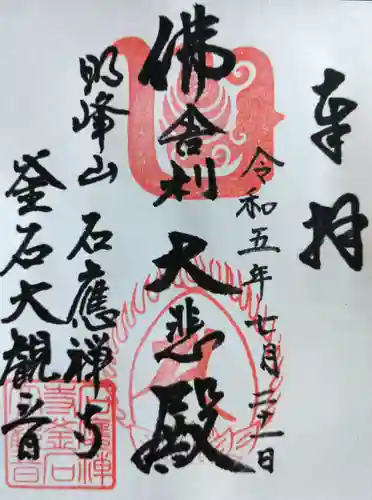 奉拝
令和五年七月二十一日
佛舎利
大悲殿
明峰山 石應禅寺
釜石大観音